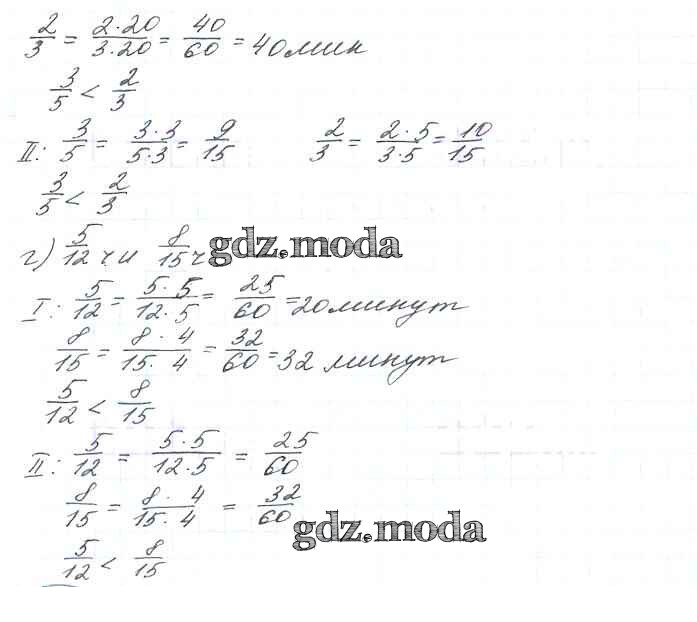 2/3 = 2·20/3·20 = 40/60 = 40 мин
3/5 < 2/3
II: 3/5 = 3·3/5·3 = 9/15 2/3 = 2·5/3·5 = 10/15
3/5 < 2/3
г) 5/12 ч и 8/15 ч
gdz.moda
I: 5/12 = 5·5/12·5 = 25/60 = 20 минут
8/15 = 8·4/15·4 = 32/60 = 32 минут
5/12 < 8/15
II: 5/12 = 5·5/12·5 = 25/60
8/15 = 8·4/15·4 = 32/60
gdz.moda
5/12 < 8/15